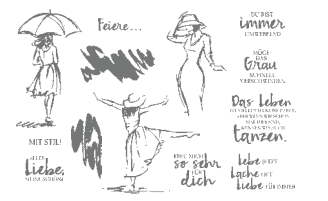 Feiere...
DU BIST
immer
UMWERFEND
MÖGE
DAS
Grau
SCHNELL
VERSCHWINDEN.
Das Leben
tanzen.
MIT STIL!
ALLES
Liebe,
MEINE SCHÖNE
FREU DICH
so sehr
FÜR
dich
Lebe JETZT
Lache OFT
Liebe FÜR IMMER